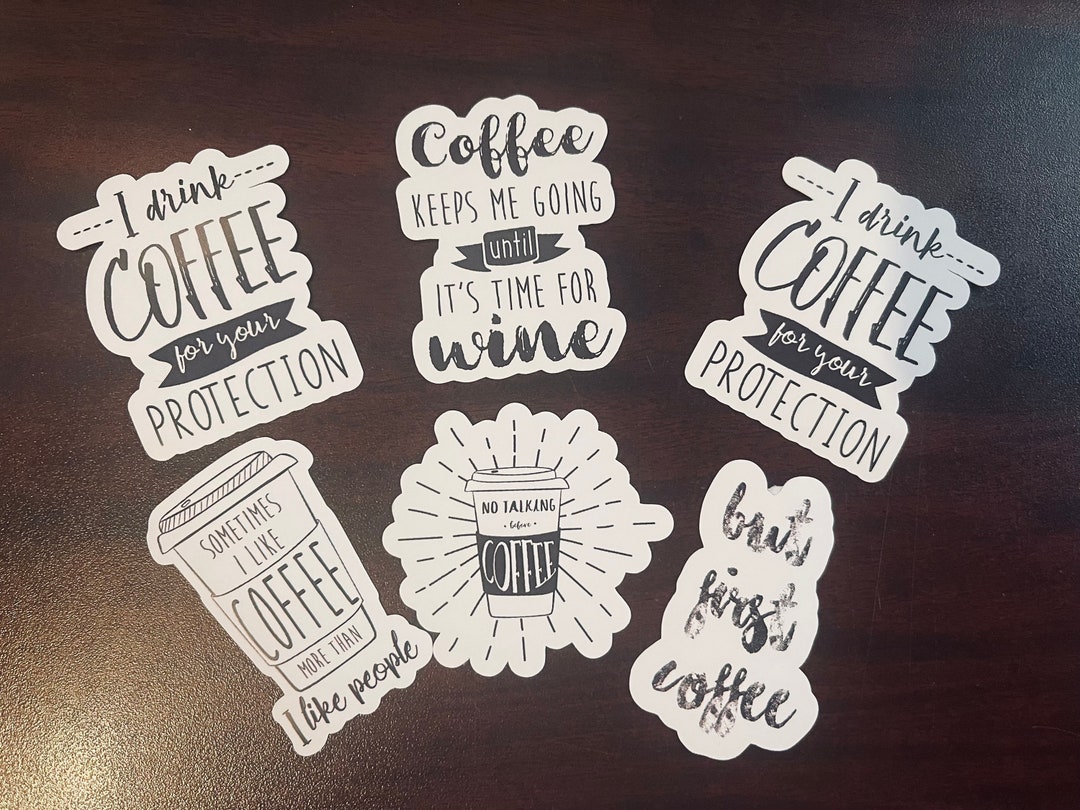 I drink
COFFEE
for your
PROTECTION
Coffee
KEEPS ME GOING
until
IT'S TIME FOR
wine
I drink
COFFEE
for your
PROTECTION
SOMETIMES
I LIKE
COFFEE
MORE THAN
I like people
NO TALKING
• before •
COFFEE
but
first
coffee